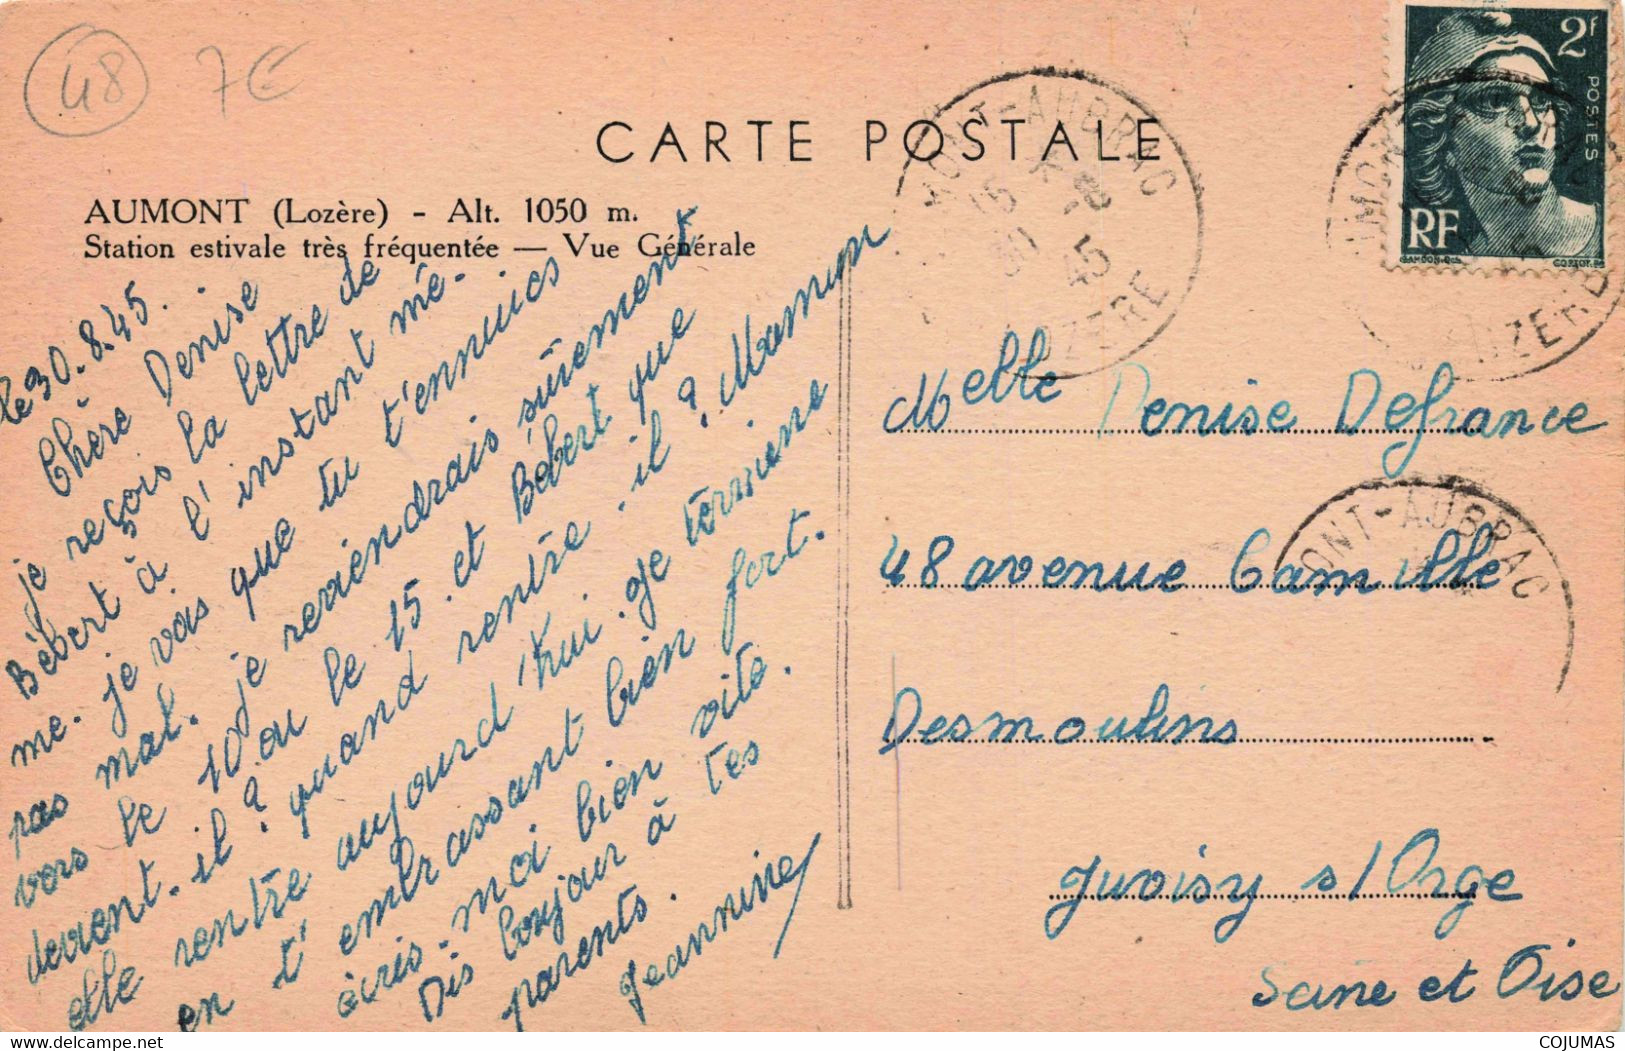 48 7€
CARTE POSTALE
AUMONT (Lozère) - Alt. 1050 m.
Station estivale très fréquentée — Vue Générale
2f
POSTES
RF
GANDON
MONT-AUBRAC
30
45
LOZERE
le 30.8.45.
Chère Denise
je reçois la lettre de
Bébert à l'instant mê-
me. je vois que tu t'ennuies
pas mal. je reviendrais sûrement
vers le 10 ou le 15. et Bébert que
devient-il? quand rentre-il? Maman
elle rentre aujourd'hui. je termine
en t'embrassant bien fort.
écris-moi bien vite.
Dis bonjour à tes
parents.
Jeannine
Melle Denise Defrance
48 avenue Camille
Desmoulins
Juvisy s/Orge
Seine et Oise
MONT-AUBRAC
www.delcampe.net
COJUMAS